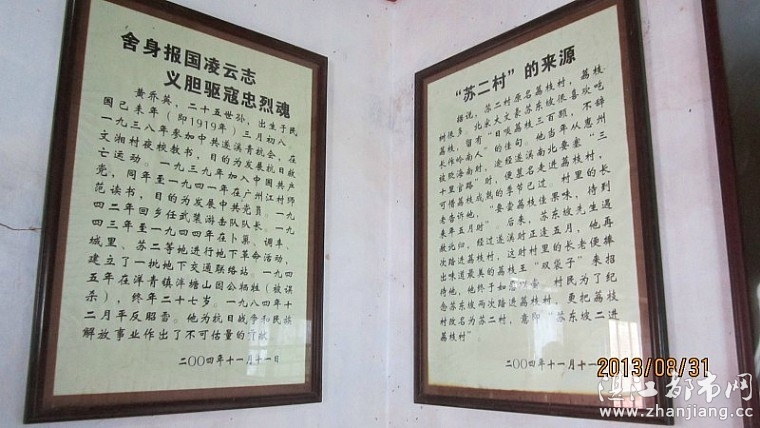 舍身报国凌云志
义胆驱寇忠烈魂
黄乔英，二十五世孙，出生于民
国己未年（即1919年）三月初八，
一九三八年参加中共遂溪青抗会，在
文湘村夜校教书，目的为发展抗日救
亡运动。一九三九年加入中国共产
党，同年至一九四一年在广州江村师
范读书，目的为发展中共党员。一九
四二年回乡任武装游击队队长。一九
四三年至一九四四年在卜巢、调丰、
城里、苏二等地进行地下革命活动，
建立了一批地下交通联络站。一九四
五年在洋青镇洋塘山因公牺牲（被误
杀），终年二十七岁。一九八四年十
二月平反昭雪。他为抗日战争和民族
解放事业作出了不可估量的贡献。
二〇〇四年十一月十一日
“苏二村”的来源
据说，苏二村原名荔枝村，荔枝
树很多，北宋大文豪苏东坡很喜欢吃
荔枝，留有“日啖荔枝三百颗，不辞
长作岭南人”的佳句。他当年从惠州
被贬海南时，途经遂溪南北要塞“三
十里官路”时，便慕名走进荔枝村，
可惜荔枝成熟的季节已过。村里的长
老告诉他，“要尝荔枝佳果味，待到
来年五月时”。后来，苏东坡先生遇
赦北归，经过遂溪时正逢五月，他再
次踏进荔枝村，这时村里的长老便捧
出味道最美的荔枝王“双袋子”来招
待他，他终于如愿以偿。村民为了纪
念苏东坡两次踏进荔枝村，更把荔枝
村改名为苏二村，意即“苏东坡二进
荔枝村”
二〇〇四年十一月十一
2013/08/31
湛江都市网
www.zhanjiang.cc